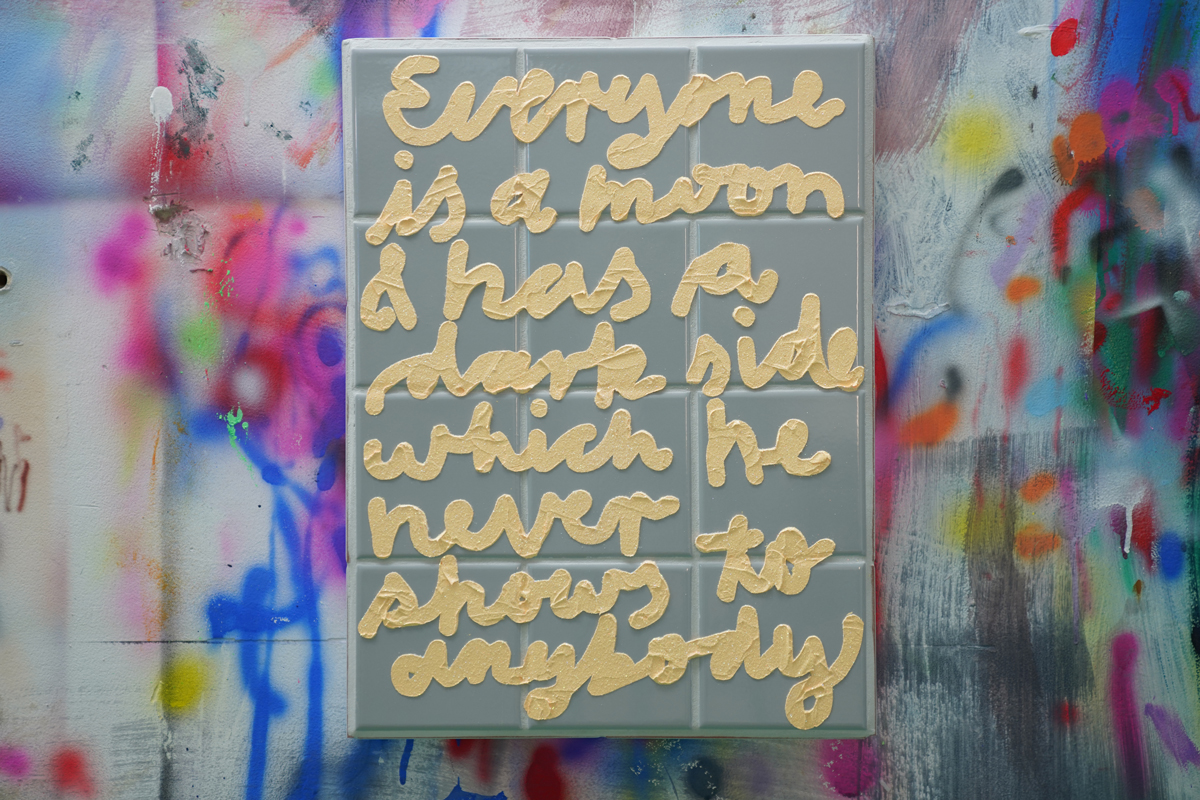 Everyone
is a moon
& has a
dark side
which he
never
shows to
anybody